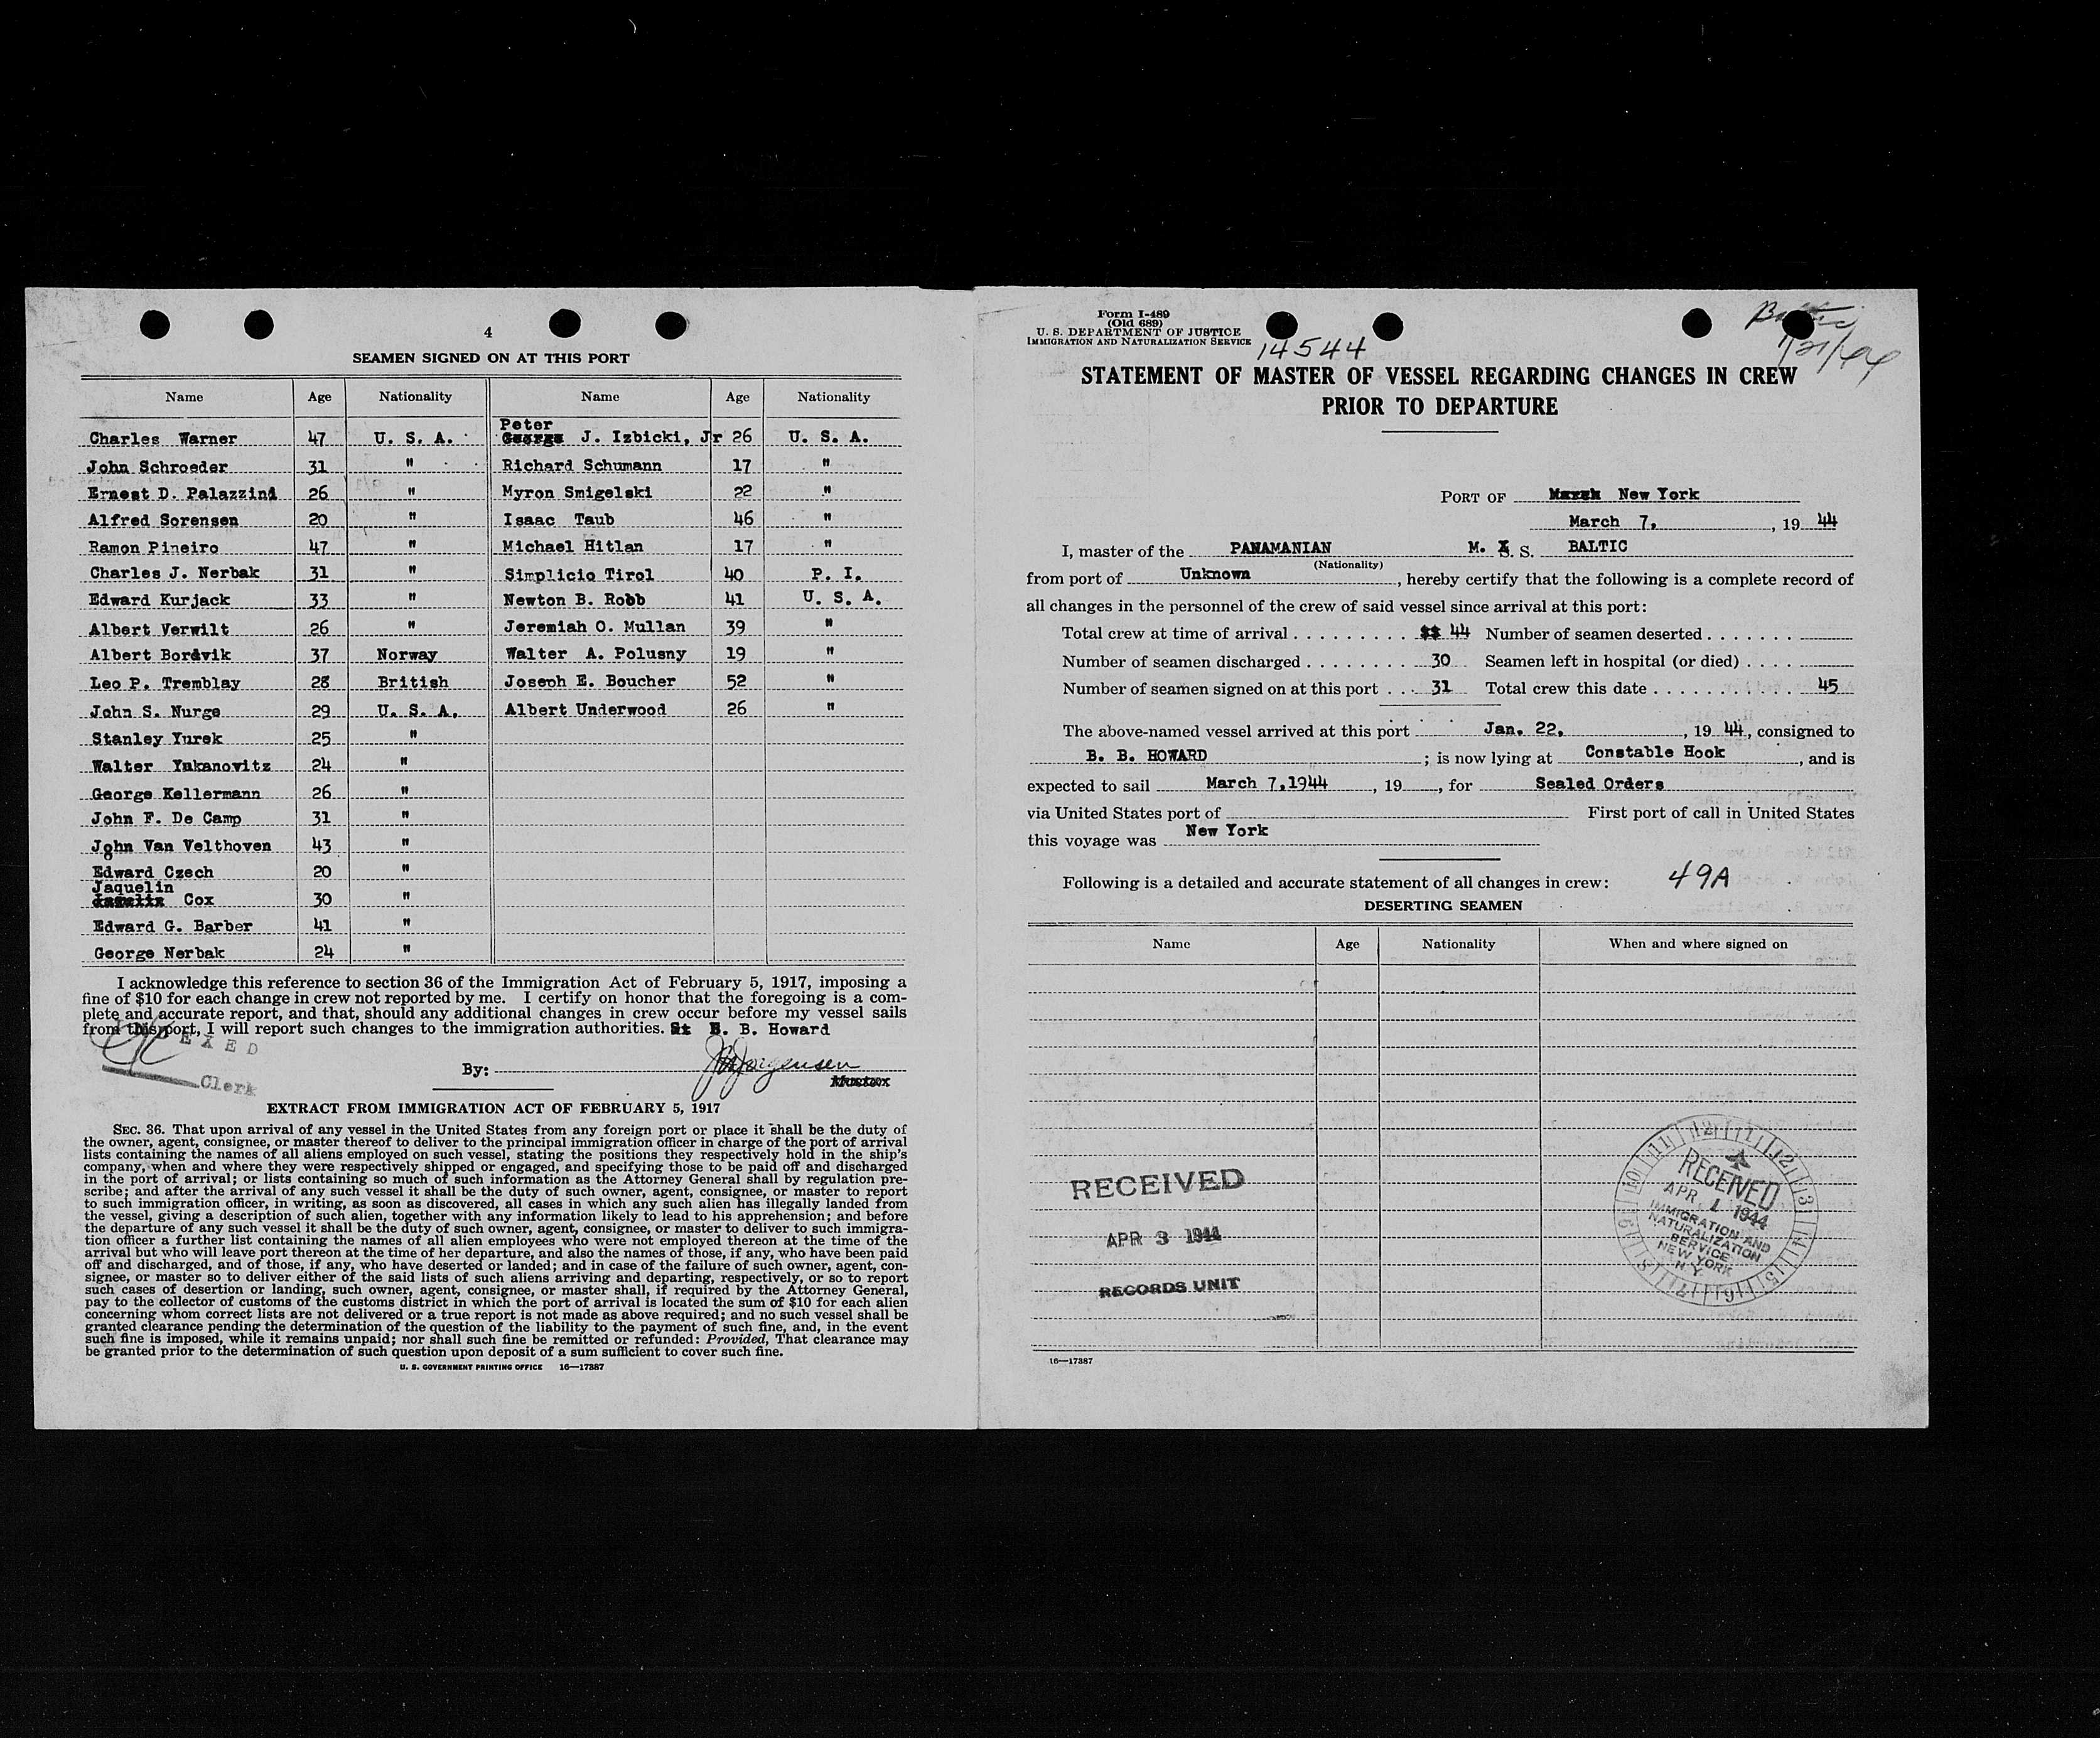 4
SEAMEN SIGNED ON AT THIS PORT
Name Age Nationality Name Age Nationality
Charles Warner 47 U. S. A. Peter J. Izbicki, Jr 26 U. S. A.
John Schroeder 31 " Richard Schumann 17 "
Ernest D. Palazzini 26 " Myron Smigelski 22 "
Alfred Sorensen 20 " Isaac Taub 46 "
Ramon Pineiro 47 " Michael Hitlan 17 "
Charles J. Nerbak 31 " Simplicio Tirol 40 P. I.
Edward Kurjack 33 " Newton B. Robb 41 U. S. A.
Albert Verwilt 26 " Jeremiah O. Mullan 39 "
Albert Bordvik 37 Norway Walter A. Polusny 19 "
Leo P. Tremblay 28 British Joseph E. Boucher 52 "
John S. Nurge 29 U. S. A. Albert Underwood 26 "
Stanley Yurek 25 "
Walter Yukanovitz 24 "
George Kellermann 26 "
John F. De Camp 31 "
John Van Velthoven 43 "
Edward Czech 20 "
Jaquelin
Cox 30 "
Edward G. Barber 41 "
George Nerbak 24 "
I acknowledge this reference to section 36 of the Immigration Act of February 5, 1917, imposing a
fine of $10 for each change in crew not reported by me. I certify on honor that the foregoing is a com-
plete and accurate report, and that, should any additional changes in crew occur before my vessel sails
from this port, I will report such changes to the immigration authorities. B. B. Howard
Clerk
By: Jorgensen
Master
EXTRACT FROM IMMIGRATION ACT OF FEBRUARY 5, 1917
SEC. 36. That upon arrival of any vessel in the United States from any foreign port or place it shall be the duty of
the owner, agent, consignee, or master thereof to deliver to the principal immigration officer in charge of the port of arrival
lists containing the names of all aliens employed on such vessel, stating the positions they respectively hold in the ship's
company, when and where they were respectively shipped or engaged, and specifying those to be paid off and discharged
in the port of arrival; or lists containing so much of such information as the Attorney General shall by regulation pre-
scribe; and after the arrival of any such vessel it shall be the duty of such owner, agent, consignee, or master to report
to such immigration officer, in writing, as soon as discovered, all cases in which any such alien has illegally landed from
the vessel, giving a description of such alien, together with any information likely to lead to his apprehension; and before
the departure of any such vessel it shall be the duty of such owner, agent, consignee, or master to deliver to such immigra-
tion officer a further list containing the names of all alien employees who were not employed thereon at the time of the
arrival but who will leave port thereon at the time of her departure, and also the names of those, if any, who have been paid
off and discharged, and of those, if any, who have deserted or landed; and in case of the failure of such owner, agent, con-
signee, or master so to deliver either of the said lists of such aliens arriving and departing, respectively, or so to report
such cases of desertion or landing, such owner, agent, consignee, or master shall, if required by the Attorney General,
pay to the collector of customs of the customs district in which the port of arrival is located the sum of $10 for each alien
concerning whom correct lists are not delivered or a true report is not made as above required; and no such vessel shall be
granted clearance pending the determination of the question of the liability to the payment of such fine, and, in the event
such fine is imposed, while it remains unpaid; nor shall such fine be remitted or refunded: Provided, That clearance may
be granted prior to the determination of such question upon deposit of a sum sufficient to cover such fine.
U. S. GOVERNMENT PRINTING OFFICE 16—17387
Form I-489
(Old 689)
U. S. DEPARTMENT OF JUSTICE
IMMIGRATION AND NATURALIZATION SERVICE
14544
Baltic
1/21/44
STATEMENT OF MASTER OF VESSEL REGARDING CHANGES IN CREW
PRIOR TO DEPARTURE
PORT OF New York
March 7, , 19 44
I, master of the PANAMANIAN M. S. S. BALTIC
(Nationality)
from port of Unknown , hereby certify that the following is a complete record of
all changes in the personnel of the crew of said vessel since arrival at this port:
Total crew at time of arrival . . . . . . . . . 44 Number of seamen deserted . . . . . . .
Number of seamen discharged . . . . . . . . 30 Seamen left in hospital (or died) . . . .
Number of seamen signed on at this port . . . 31 Total crew this date . . . . . . . . . . . 45
The above-named vessel arrived at this port Jan. 22, , 19 44, consigned to
B. B. HOWARD ; is now lying at Constable Hook , and is
expected to sail March 7,1944 , 19 , for Sealed Orders
via United States port of First port of call in United States
this voyage was New York
Following is a detailed and accurate statement of all changes in crew: 49A
DESERTING SEAMEN
Name Age Nationality When and where signed on
RECEIVED
APR 3 1944
RECORDS UNIT
12 1 2 3 4 5 6 7 8 9 10 11
RECEIVED
APR 1 1944
IMMIGRATION AND
NATURALIZATION
SERVICE
NEW YORK
N. Y.
16—17387